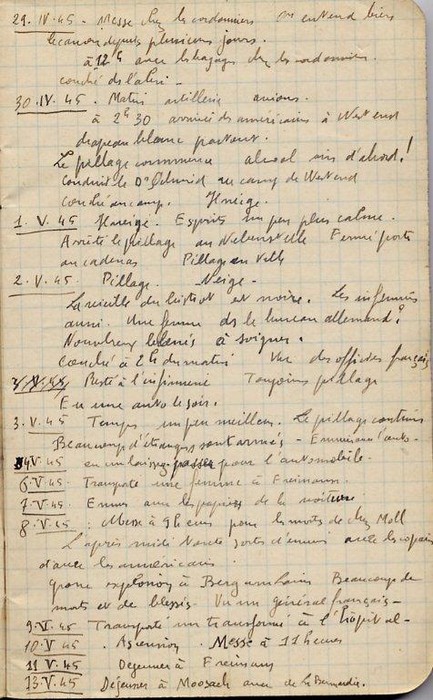 29.IV.45 - Messe chez les cordonniers On entend bien
le canon depuis plusieurs jours.
à 12h avec les bagages chez les cordonniers.
couché ds l'abri -
30.IV.45. Matin artillerie avions.
à 2h30 arrivée des américains à West end
drapeau blanc partout.
Le pillage commence alcool vins d'abord!
Conduit le Dr Schmid au camp de West end
Couché au camp. Il neige.
1.V.45 Il neige. Esprits un peu plus calme.
Arrêté le pillage au Nebenstelle Fermé porte
au cadenas Pillage en ville
2.V.45 Pillage. Neige -
La vieille du est noire. Les infirmiers
aussi. Une femme ds le bureau allemand?
Nombreux blessés à soigner.
Couché à 2h du matin Vu des officiers français
Resté à l'infirmerie Toujours pillage
En une auto le soir.
3.V.45 Temps un peu meilleur. Le pillage continu
Beaucoup d'étrangers sont armés - Emmène l'auto -
4V.45 eu un laissez-passer pour l'automobile.
6.V.45 Transporte une femme à Freimann.
7.V.45 Ennuis avec les papiers de la voiture
8.V.45 : Messe à 9heures pour les morts de chez Moll
L'après midi sorte d'ennui avec les copains
d' avec les américains
grosse explosion à Berg am Laim Beaucoup de
morts et de blessés. Vu un général français -
9.V.45 Transporte un transformé à l'hôpital -
10.V.45. Ascension. Messe à 11heures
11 V.45 Dejeuner à Freimann
13.V.45 Déjeuner à Moosach avec de la